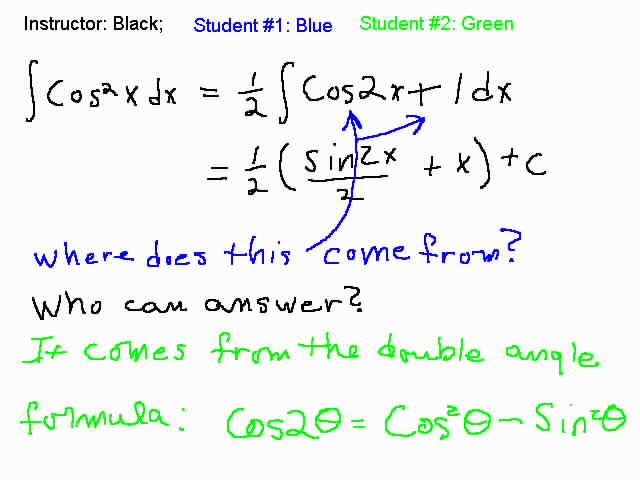 Instructor: Black; Student #1: Blue Student #2: Green
∫Cos²x dx = 1/2 ∫Cos2x + 1 dx
= 1/2 (sin2x/2 + x) + c
where does this come from?
Who can answer?
It comes from the double angle
formula: Cos2θ = Cos²θ - Sin²θ